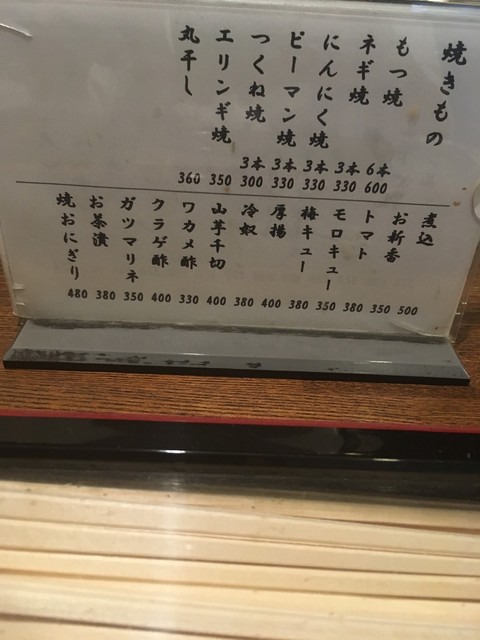 焼きもの
もつ焼 6本 600
ネギ焼 3本 330
にんにく焼 3本 330
ピーマン焼 3本 330
つくね焼 3本 300
エリンギ焼 350
丸干し 360
煮込 500
お新香 350
トマト 380
モロキュー 350
梅キュー 380
厚揚 400
冷奴 380
山芋千切 400
ワカメ酢 330
クラゲ酢 400
ガツマリネ 350
お茶漬 380
焼おにぎり 480